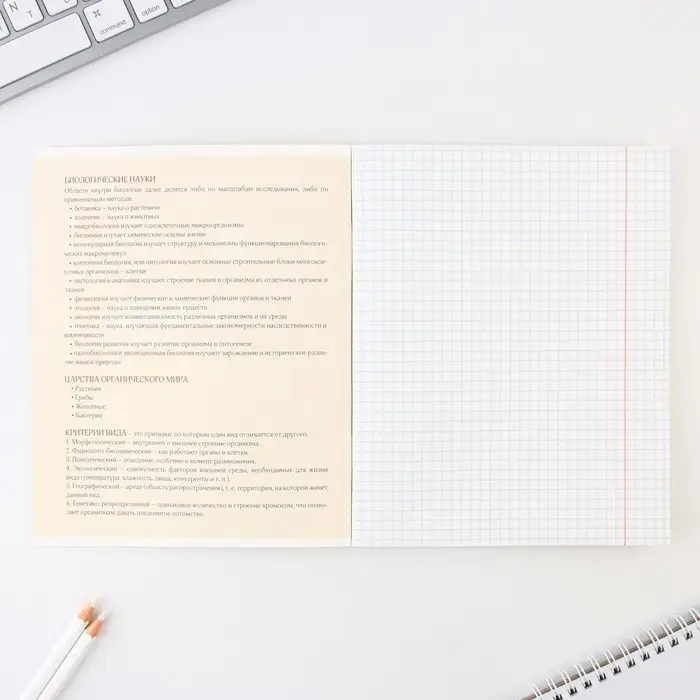 N
T
⌘
command
option
БИОЛОГИЧЕСКИЕ НАУКИ
Области внутри биологии далее делятся либо по масштабам исследования, либо по
применяемым методам:
• ботаника – наука о растениях
• зоология – наука о животных
• микробиология изучает одноклеточные микроорганизмы
• биохимия изучает химические основы жизни
• молекулярная биология изучает структуру и механизмы функционирования биологи-
ческих макромолекул
• клеточная биология, или цитология изучает основные строительные блоки многокле-
точных организмов – клетки
• гистология и анатомия изучают строение тканей и организма из отдельных органов и
тканей
• физиология изучает физические и химические функции органов и тканей
• этология – наука о поведении живых существ
• экология изучает взаимозависимость различных организмов и их среды
• генетика – наука, изучающая фундаментальные закономерности наследственности и
изменчивости
• биология развития изучает развитие организма в онтогенезе
• палеобиология и эволюционная биология изучают зарождение и историческое разви-
тие живой природы
ЦАРСТВА ОРГАНИЧЕСКОГО МИРА
• Растения
• Грибы
• Животные
• Бактерии
КРИТЕРИИ ВИДА – это признаки, по которым один вид отличается от другого.
1. Морфологический – внутреннее и внешнее строение организма.
2. Физиолого-биохимический – как работают органы и клетки.
3. Поведенческий – поведение, особенно в момент размножения.
4. Экологический – совокупность факторов внешней среды, необходимых для жизни
вида (температура, влажность, пища, конкуренты и т. п.).
5. Географический – ареал (область распространения), т. е. территория, на которой живёт
данный вид.
6. Генетико-репродуктивный – одинаковое количество и строение хромосом, что позво-
ляет организмам давать плодовитое потомство.